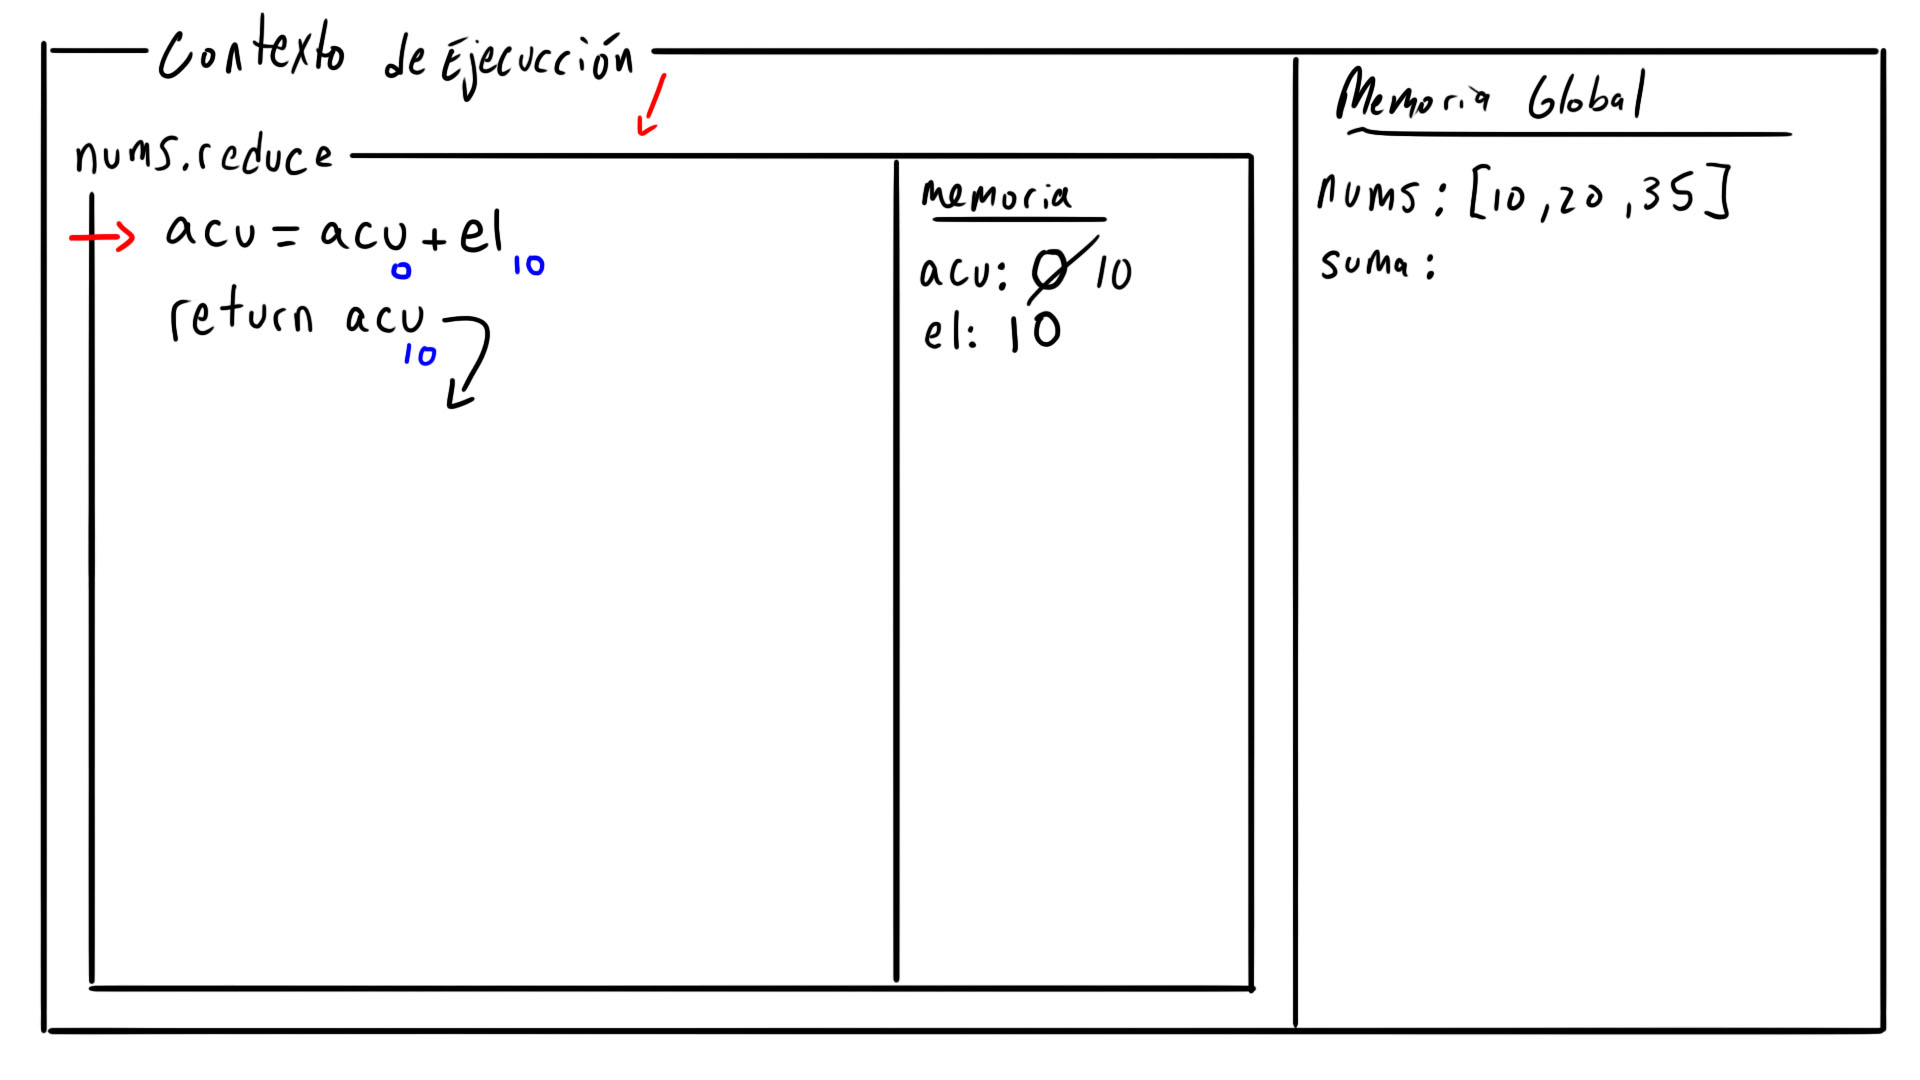 Contexto de Ejecucción
nums.reduce
acu = acu + el
0 10
return acu
10
memoria
acu: 0 10
el: 10
Memoria Global
nums: [10,20,35]
suma: